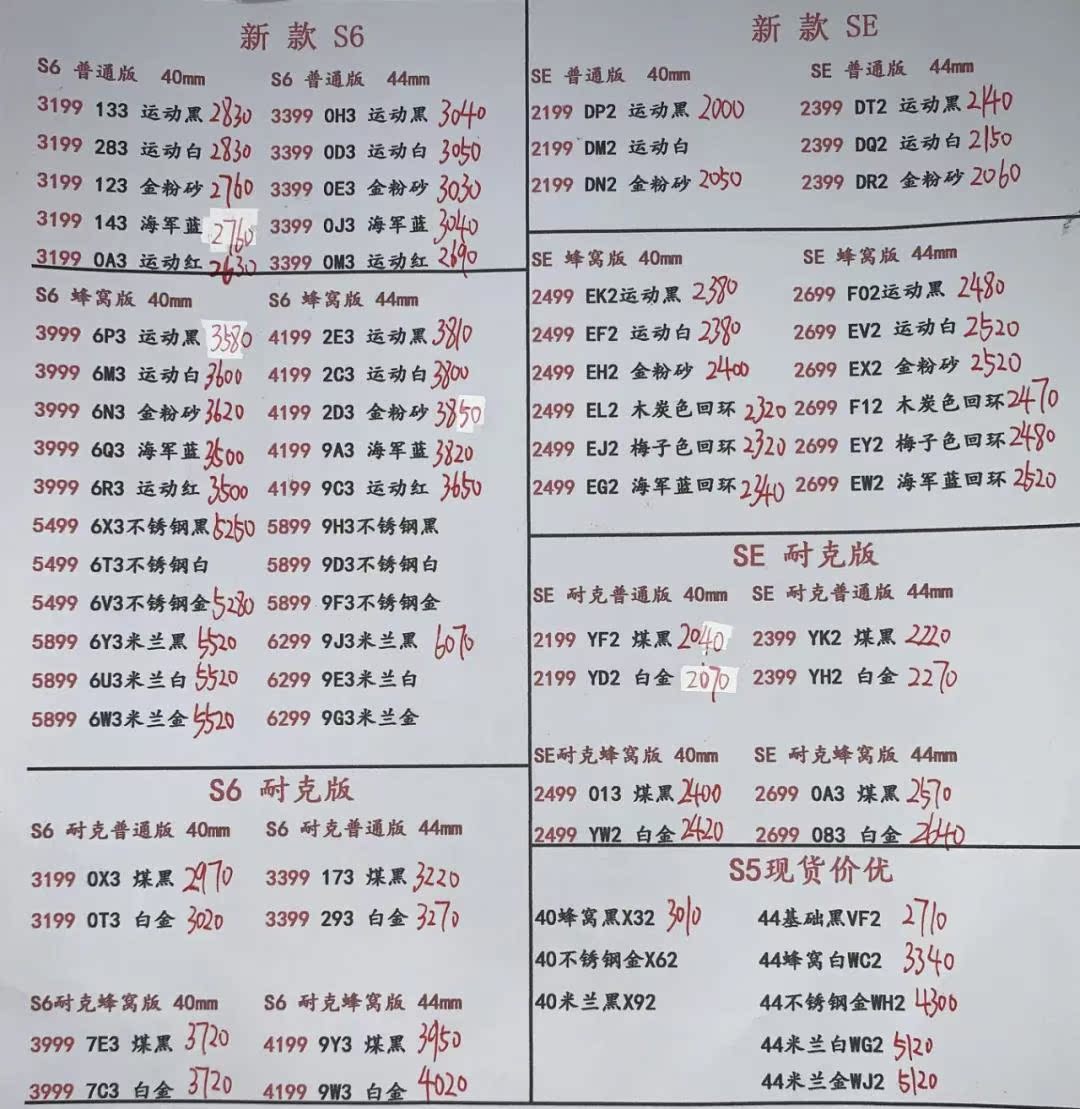 新 款 S6
S6 普通版 40mm
3199 133 运动黑 2830
3199 283 运动白 2830
3199 123 金粉砂 2760
3199 143 海军蓝 2760
3199 0A3 运动红 2630
S6 普通版 44mm
3399 0H3 运动黑 3040
3399 0D3 运动白 3050
3399 0E3 金粉砂 3030
3399 0J3 海军蓝 3040
3399 0M3 运动红 2690
S6 蜂窝版 40mm
3999 6P3 运动黑 3580
3999 6M3 运动白 3600
3999 6N3 金粉砂 3620
3999 6Q3 海军蓝 3500
3999 6R3 运动红 3500
5499 6X3不锈钢黑 5250
5499 6T3不锈钢白
5499 6V3不锈钢金 5280
5899 6Y3米兰黑 5520
5899 6U3米兰白 5520
5899 6W3米兰金 5520
S6 蜂窝版 44mm
4199 2E3 运动黑 3810
4199 2C3 运动白 3800
4199 2D3 金粉砂 3850
4199 9A3 海军蓝 3820
4199 9C3 运动红 3650
5899 9H3不锈钢黑
5899 9D3不锈钢白
5899 9F3不锈钢金
6299 9J3米兰黑 6070
6299 9E3米兰白
6299 9G3米兰金
S6 耐克版
S6 耐克普通版 40mm
3199 0X3 煤黑 2970
3199 0T3 白金 3020
S6 耐克普通版 44mm
3399 173 煤黑 3220
3399 293 白金 3270
S6耐克蜂窝版 40mm
3999 7E3 煤黑 3720
3999 7C3 白金 3720
S6 耐克蜂窝版 44mm
4199 9Y3 煤黑 3950
4199 9W3 白金 4020
新 款 SE
SE 普通版 40mm
2199 DP2 运动黑 2000
2199 DM2 运动白
2199 DN2 金粉砂 2050
SE 普通版 44mm
2399 DT2 运动黑 2140
2399 DQ2 运动白 2150
2399 DR2 金粉砂 2060
SE 蜂窝版 40mm
2499 EK2运动黑 2380
2499 EF2 运动白 2380
2499 EH2 金粉砂 2400
2499 EL2 木炭色回环 2320
2499 EJ2 梅子色回环 2320
2499 EG2 海军蓝回环 2340
SE 蜂窝版 44mm
2699 F02运动黑 2480
2699 EV2 运动白 2520
2699 EX2 金粉砂 2520
2699 F12 木炭色回环 2470
2699 EY2 梅子色回环 2480
2699 EW2 海军蓝回环 2520
SE 耐克版
SE 耐克普通版 40mm
2199 YF2 煤黑 2040
2199 YD2 白金 2070
SE 耐克普通版 44mm
2399 YK2 煤黑 2220
2399 YH2 白金 2270
SE耐克蜂窝版 40mm
2499 013 煤黑 2400
2499 YW2 白金 2420
SE 耐克蜂窝版 44mm
2699 0A3 煤黑 2570
2699 083 白金 2640
S5现货价优
40蜂窝黑X32 3010
40不锈钢金X62
40米兰黑X92
44基础黑VF2 2710
44蜂窝白WC2 3340
44不锈钢金WH2 4300
44米兰白WG2 5120
44米兰金WJ2 5120